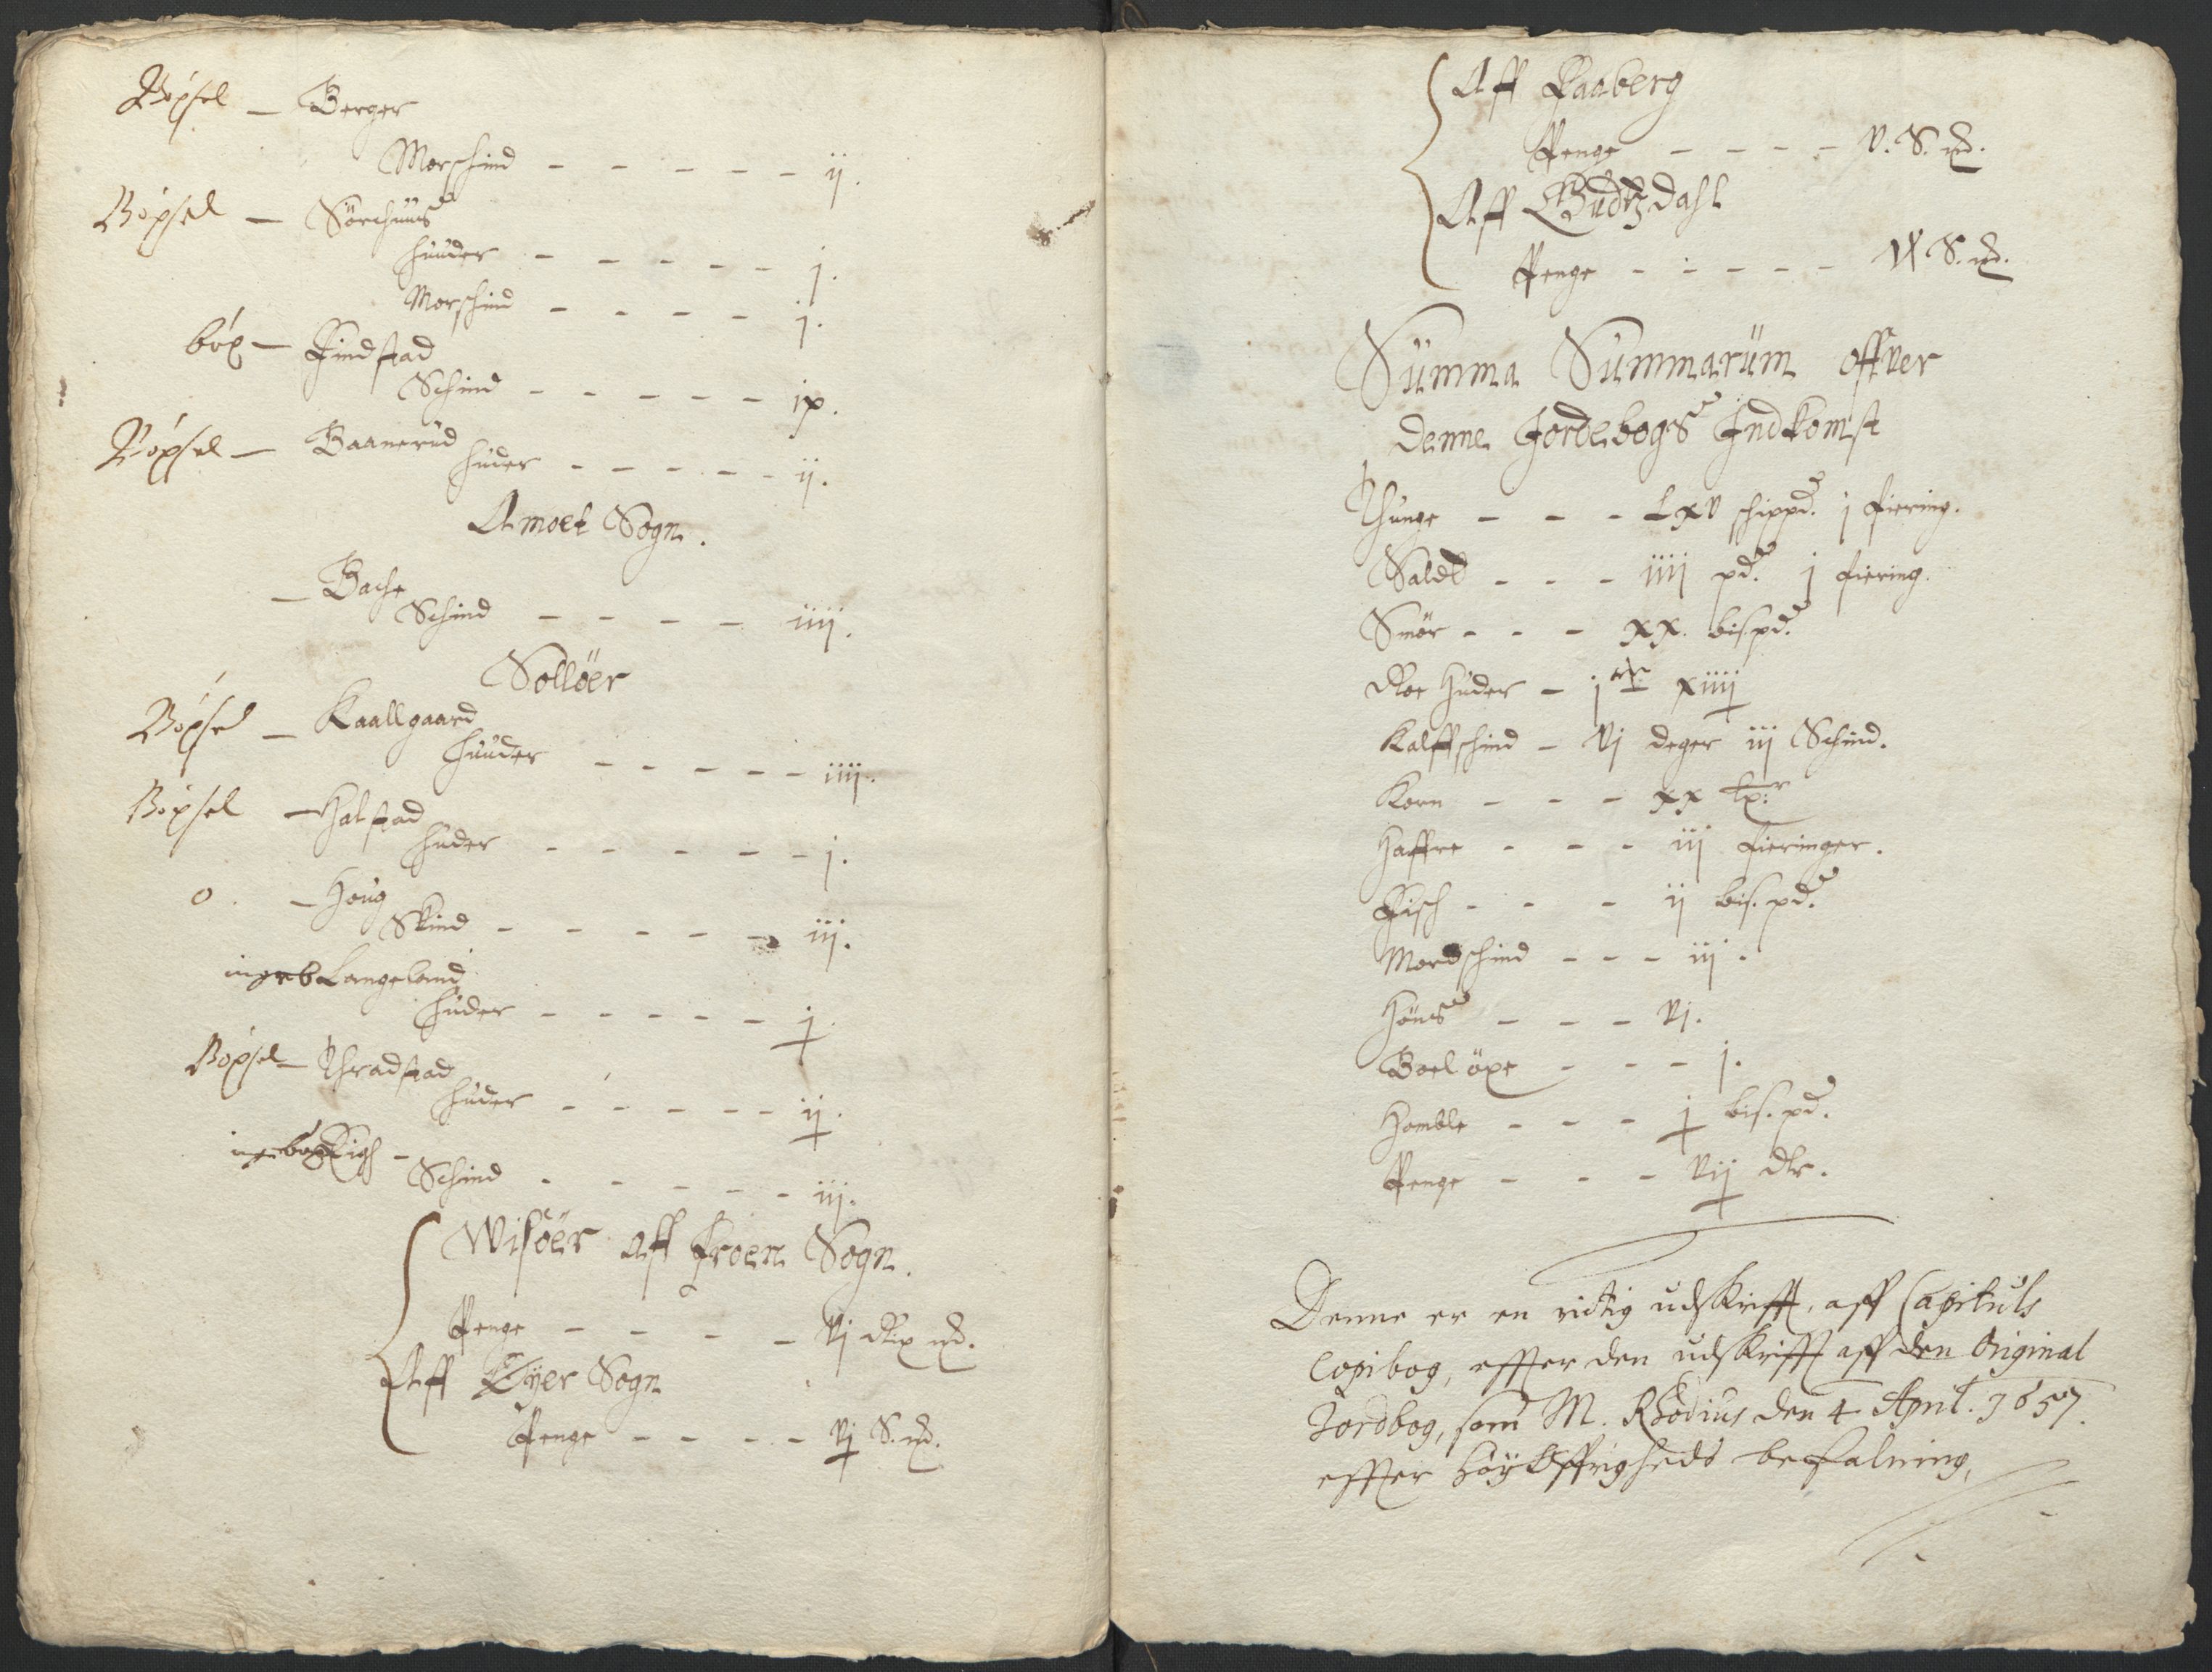 Böxsel — Berger
Morschind - - - - - ij.
Böxsel — Sörchuus
huuder - - - - - j.
Morschind - - - - j.
böx — Findstad
Schind - - - - - ix.
Böxsel — Baanerud
huder - - - - - ij.
Amoet Sogn.
— Bache
Schind - - - - iiij.
Sollöer
Böxsel — Kaallgaard
huuder - - - - - iiij.
Böxsel — Halstad
huder - - - - - j.
o. — Houg
Skind - - - - - iij.
Langeland
huder - - - - - j
Böxsel — Thradstad
huder - - - - - ij.
Schind - - - - - iij.
Wisöer Aff Froen Sogn.
Penge - - - - Vj Rix
Aff Öyer Sogn
Penge - - - - Vj S.
Aff Faaberg
Penge - - - - V. S.
Aff Gudtzdahl
Penge - - - - - S.
Summa Summarum offver
denne Jordebogs Indkomst
Thunge - - - Lxv schippd. j fiering.
Saldt - - - iiij pd. j fiering.
Smör - - - xx. bispd.
Noe Huder - j xiiij
Kalffschind - Vj deger iij Schind.
Korn - - - xx
Haffre - - - iij fieringer.
Fisch - - - ij bis.pd.
Mordschind - - - iij.
Höns - - - Vj.
Boel öxe - - - j.
Homble - - - j bis.pd.
Penge - - - Vij dlr.
Denne er en rictig udskrifft, aff Capituls
Copibog, effter den udskrifft aff den Original
Jordbog, som M. Rhodius den 4 April. 1657.
effter höy Öffrigheds befalning,